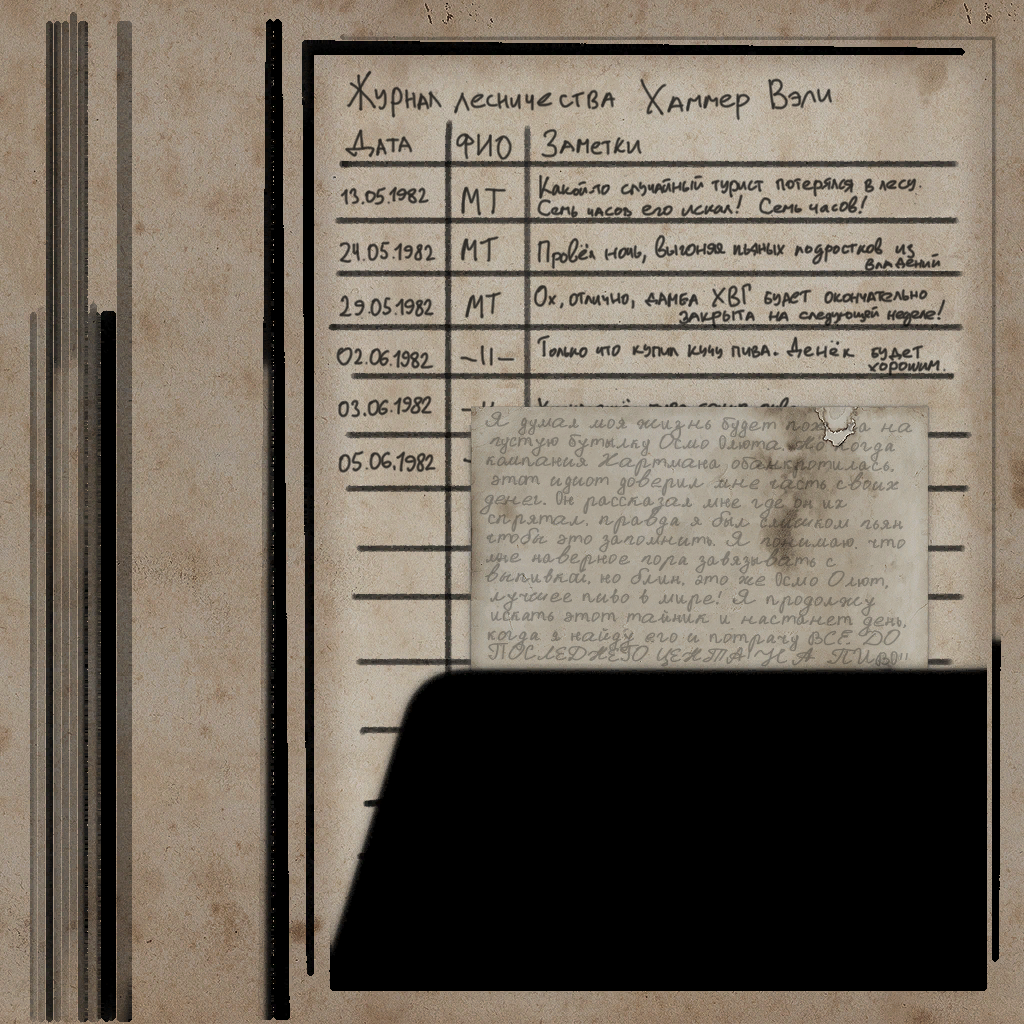 Журнал лесничества Хаммер Вэли
Дата ФИО Заметки
13.05.1982 МТ Какой-то случайный турист потерялся в лесу.
Семь часов его искал! Семь часов!
24.05.1982 МТ Провёл ночь, выгоняя пьяных подростков из
владений
29.05.1982 МТ Ох, отлично, дамба ХВГ будет окончательно
закрыта на следующей неделе!
02.06.1982 –II– Только что купил кучу пива. Денёк будет
хорошим.
03.06.1982
05.06.1982
Я думал моя жизнь будет похожа на
пустую бутылку Осмо Олюта. Но когда
кампания Хартмана обанкротилась,
этот идиот доверил мне часть своих
денег. Он рассказал мне где он их
спрятал, правда я был слишком пьян
чтобы это запомнить. Я понимаю, что
мне наверное пора завязывать с
выпивкой, но блин, это же Осмо Олют,
лучшее пиво в мире! Я продолжу
искать этот тайник и настанет день,
когда я найду его и потрачу ВСЕ ДО
ПОСЛЕДНЕГО ЦЕНТА НА ПИВО!!